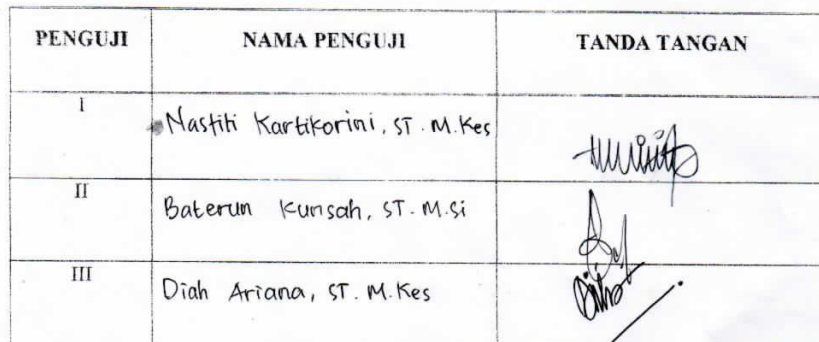 PENGUJI NAMA PENGUJI TANDA TANGAN
I Nastiti Kartikorini, ST. M.Kes
II Baterun Kunsah, ST. M.Si
III Diah Ariana, ST. M.Kes